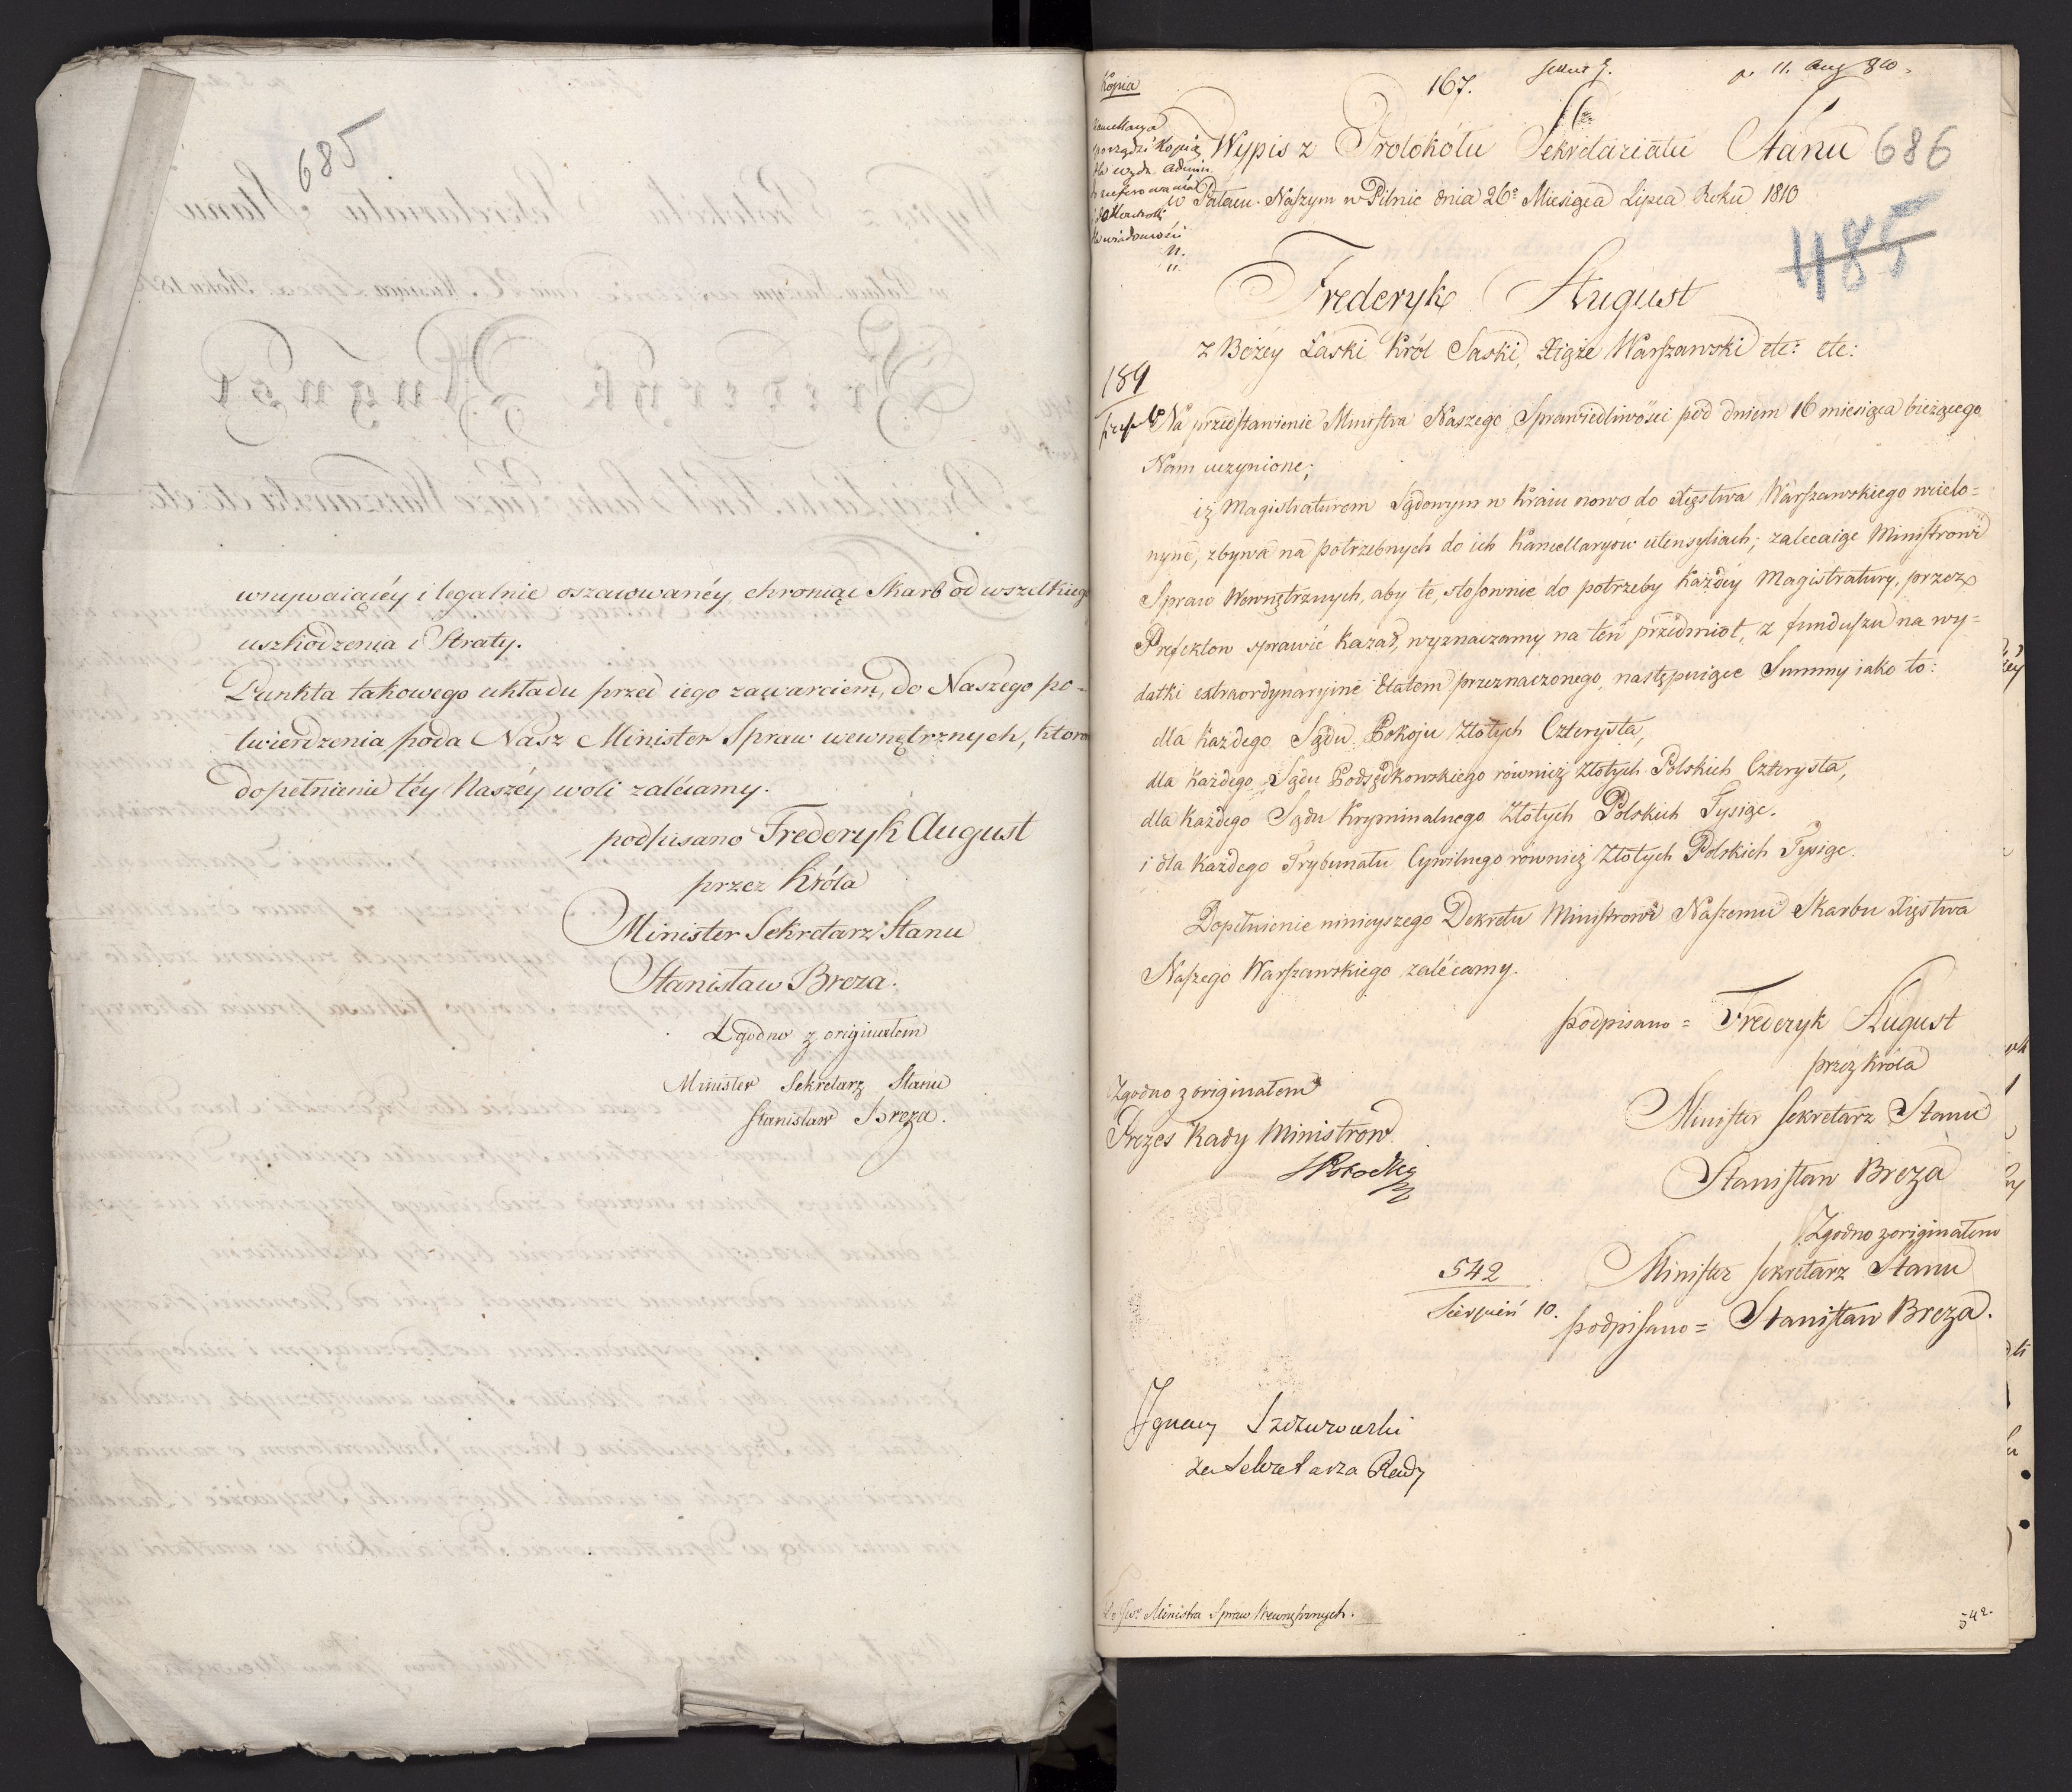 685
wzywaiącéy i legalnie oszacowanéy, chroniąc Skarb od wszelkiego
uszkodzenia i Straty.
Punkta takowego układu przed iego zawarciem, do Naszego po-
twierdzenia poda Nasz Minister Spraw wewnętrznych, które
dopełnienie téy Naszéy woli zalécamy.
podpisano Frederyk August
przez Króla
Minister Sekretarz Stanu
Stanisław Breza.
Zgodno z originałem
Minister Sekretarz Stanu
Stanisław Breza.
Kopia
167.
11. Aug 810
Wypis z Protokółu Sekretariatu Stanu 686
w Pałacu Naszym w Pilnic dnia 26º Miesiąca Lipca Roku 1810
sporządzi kopią
dla wydz. admin.
dla wiadomości
485
Frederyk August
z Bożéy Łaski Król Saski, Xiąże Warszawski etc: etc:
189
Na przedstawienie Ministra Naszego Sprawiedliwości pod dniem 16 miesiąca bieżącego
Nam uczynione;
iż Magistraturom Sądowym w Kraiu nowo do Xięstwa Warszawskiego wcielo=
nym, zbywa na potrzebnych do ich Kancellaryów utensyliach; zalecaiąc Ministrowi
Spraw Wewnętrznych, aby te, stosownie do potrzeby każdéy Magistratury, przez
Prefektow sprawić kazał, wyznaczamy na ten przedmiot, z funduszu na wy=
datki extraordynaryine Etatem przeznaczonego, następuiące Summy iako to:
dla każdego Sądu Pokoju Złotych Czterysta,
dla każdego Sądu Podsędkowskiego również Złotych Polskich Czterysta,
dla każdego Sądu Kryminalnego Złotych Polskich Tysiąc.
i dla każdego Trybunału Cywilnego również Złotych Polskich Tysiąc.
Dopełnienie ninieyszego Dekretu Ministrowi Naszemu Skarbu Xięstwa
Naszego Warszawskiego zalécamy.
podpisano = Frederyk August
przez Króla
Minister Sekretarz Stanu
Stanisław Breza
Zgodno z originałem
Minister Sekretarz Stanu
podpisano = Stanisław Breza.
Zgodno z originałem
Prezes Rady Ministrow
542
Sierpień 10.
Ignacy Szczurowski
za Sekretarza Rady
Ministra Spraw Wewnętrznych.
542.